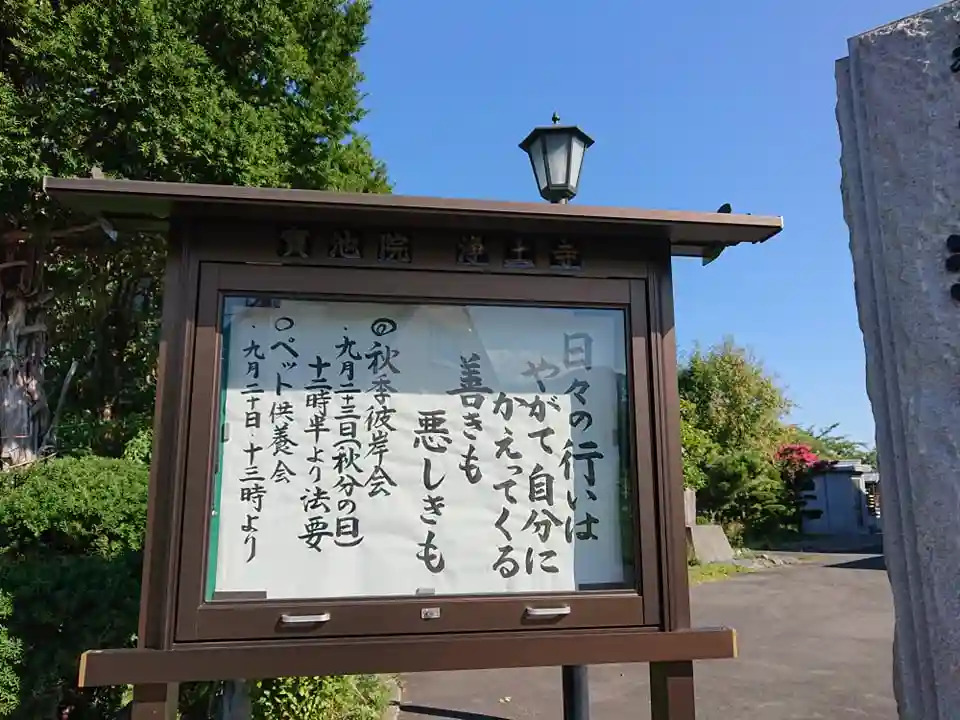 寳池院 浄土寺
日々の行いは
やがて自分に
かえってくる
善きも
悪しきも
◎秋季彼岸会
・九月二十三日(秋分の日)
十二時半より法要
○ペット供養会
・九月二十日・十三時より